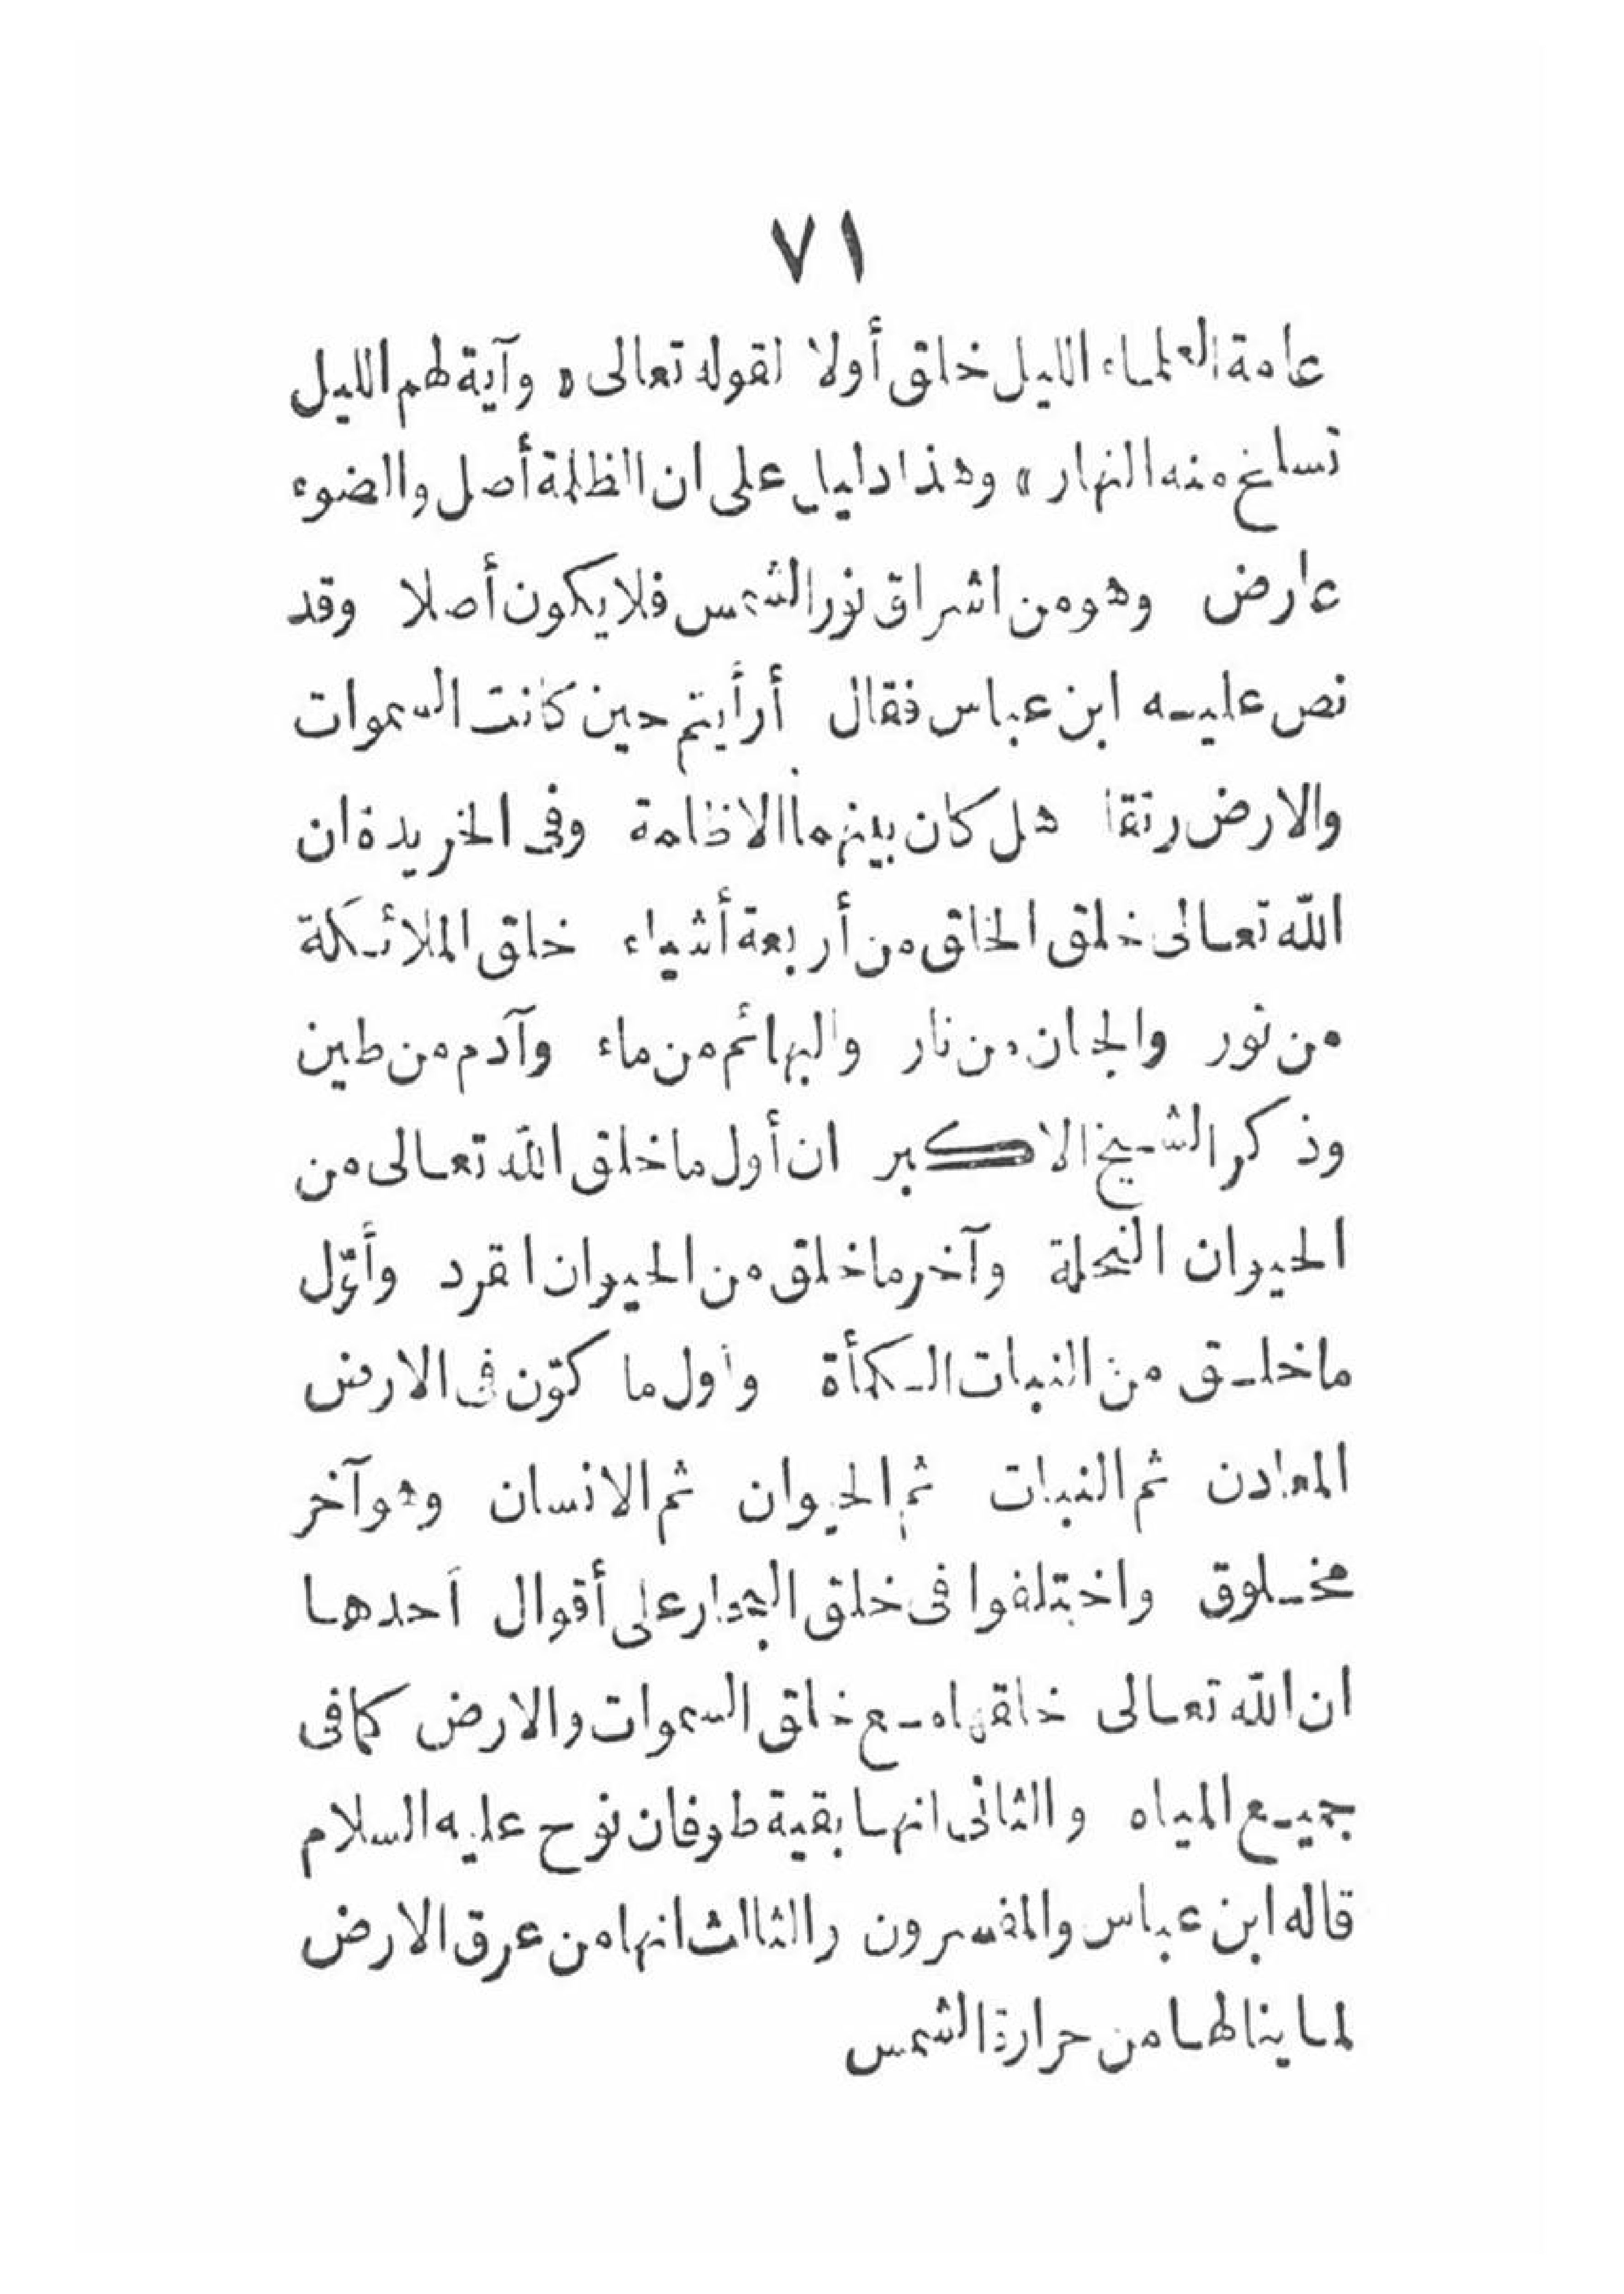 ٧١
عامة العلماء الليل خلق أولا لقوله تعالى « وآية لهم الليل
نسلخ منه النهار » وهذا دليل على ان الظلمة أصل والضوء
عارض وهو من اشراق نور الشمس فلا يكون أصلا وقد
نص عليه ابن عباس فقال أرأيتم حين كانت السموات
والارض رتقا هل كان بينهما الا ظلمة وفى الخريدة ان
الله تعالى خلق الخلق من أربعة أشياء خلق الملائكة
من نور والجان من نار والبهائم من ماء وآدم من طين
وذكر الشيخ الاكبر ان أول ما خلق الله تعالى من
الحيوان النحلة وآخر ما خلق من الحيوان القرد وأوّل
ما خلق من النبات الكمأة واول ما كوّن فى الارض
المعادن ثم النبات ثم الحيوان ثم الانسان وهو آخر
مخلوق واختلفوا فى خلق البحار على أقوال احدها
ان الله تعالى خلقها مع خلق السموات والارض كما فى
جميع المياه والثانى انها بقية طوفان نوح عليه السلام
قاله ابن عباس والمفسرون والثالث انها من عرق الارض
لما ينالها من حرارة الشمس